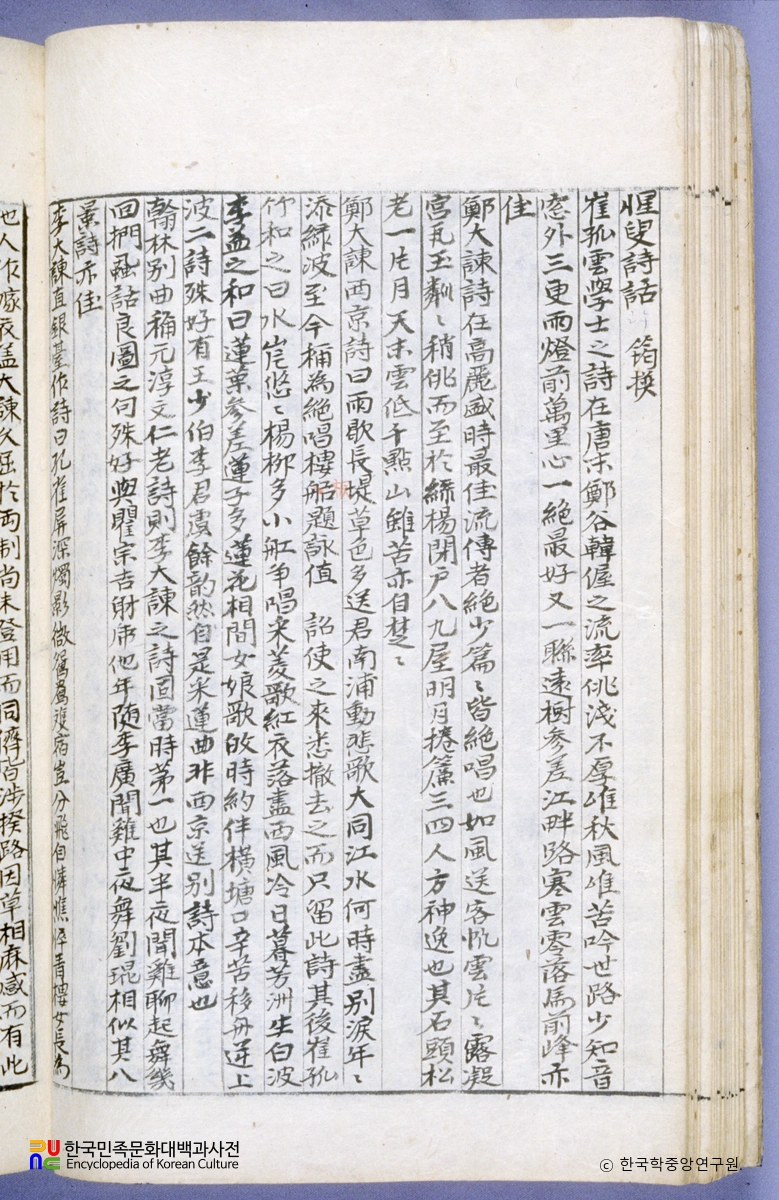 惺叟詩話 筠撰
崔孤雲學士之詩在唐末鄭谷韓偓之流率佻淺不厚唯秋風唯苦吟世路少知音
窓外三更雨燈前萬里心一絶最好又一聯遠樹參差江畔路寒雲零落馬前峰亦
佳
鄭大諫詩在高麗盛時最佳流傳者絶少篇〻皆絶唱也如風送客帆雲片〻露凝
宮瓦玉粼〻稍佻而至於綠楊閉戶八九屋明月捲簾三四人方神逸也其石頭松
老一片月天末雲低千點山雖苦亦自楚〻
鄭大諫西京詩曰雨歇長堤草色多送君南浦動悲歌大同江水何時盡別淚年〻
添綠波至今稱為絶唱樓船題詠值 詔使之來悉撤去之而只留此詩其後崔孤
竹和之曰水岸悠〻楊柳多小舡爭唱采菱歌紅衣落盡西風冷日暮芳洲生白波
李益之和曰蓮葉參差蓮子多蓮花相間女娘歌歸時約伴橫塘口辛苦移舟逆上
波二詩殊好有王少伯李君虞餘韵然自是采蓮曲非西京送別詩本意也
翰林別曲稱元淳文仁老詩則李大諫之詩固當時第一也其半夜聞雞聊起舞幾
回捫虱話良圖之句殊好與瞿宗吉射虎他年隨李廣聞雞中夜舞劉琨相似其八
景詩亦佳
李大諫直銀臺作詩曰孔雀屏深燭影微鴛鴦雙宿豈分飛自憐憔悴青樓女長為
他人作嫁衣盖大諫久屈於両制尚未登用而同儕皆涉揆路因草相麻感而有此
한국민족문화대백과사전
Encyclopedia of Korean Culture
ⓒ 한국학중앙연구원